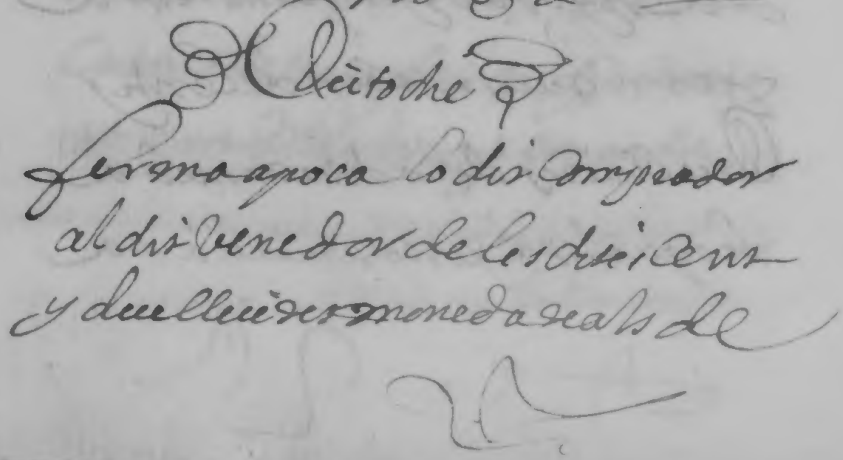 Dit o die
ferma apoca lo dit Comprador
al dit Venedor de les dites Cent
y deu lliures moneda reals de